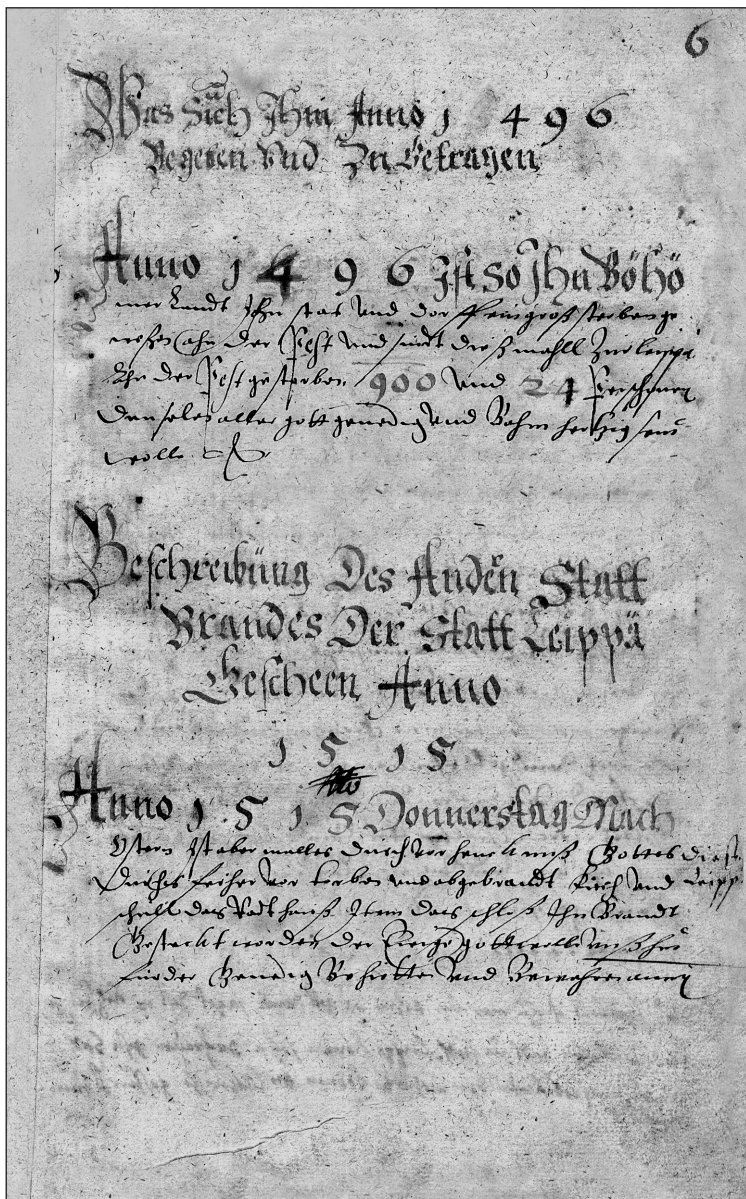 6
Was Sich Ihm Anno 1 4 9 6
Begeben Vnd Zu Getragen
Anno 1 4 9 6 Ist So Ihn Böhö
mer Landt Ihn stat vnd dorffrn ein groß sterben ge
weßen ahn der Pest vnd sindt dieß mahll Zur leippa
Ahn der Pest gestorben 900 vnd 24 Perschonen
Den selen aller gott genedig vnd Bahmhertzig sein
wolle
Beschreibüng Des Andern Statt
Brandes Der Statt Leippä
Gescheen Anno
1 5 1 5
Anno 1 5 1 5 Donnerstag Nach
Ostern Ist aber malles durch vor hencknuß Gottes die st
durches feiher vor torben vnd abgebrandt Kirch vnd
schull das Radt hauß Item das schloß Ihn Brandt
Gesteckt worden der Ewige gott wolle vnß hin
fürder Genedig Behütten Vnd Bewahren